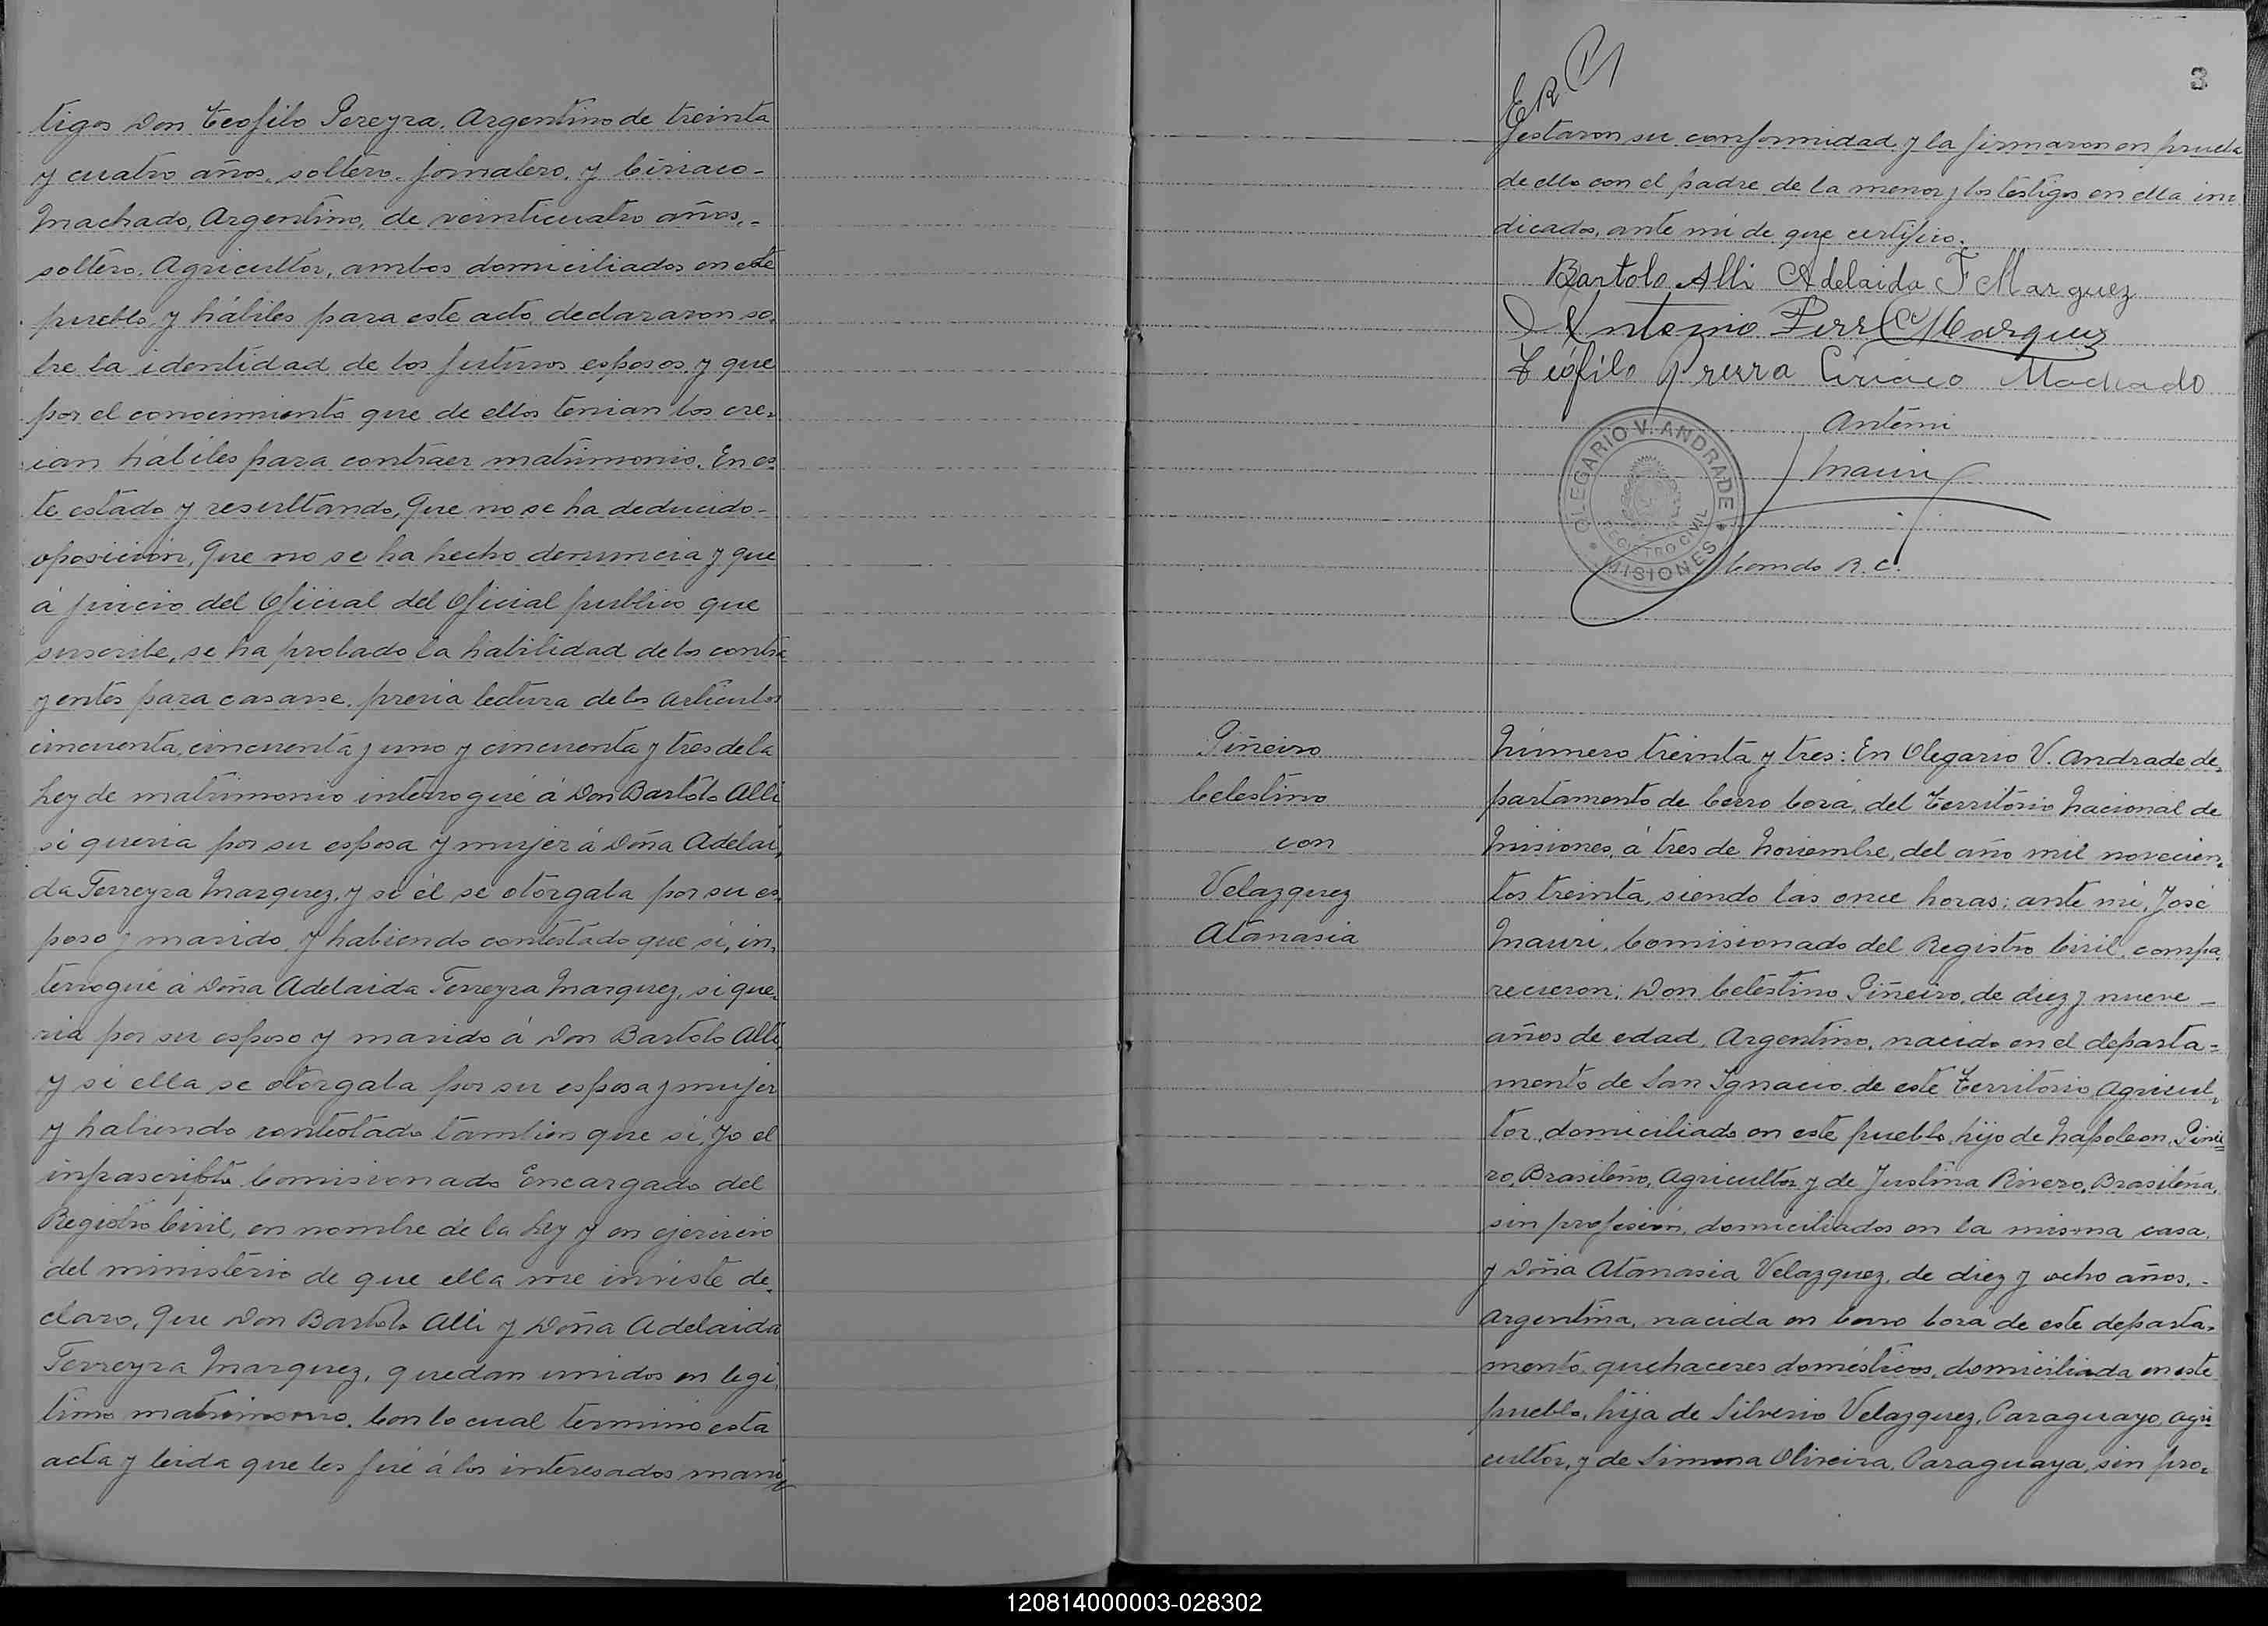 tigos Don Teofilo Pereyra, Argentino de treinta
y cuatro años, soltero, jornalero, y Ciriaco-
Machado, Argentino, de veinticuatro años,-
soltero, Agricultor, ambos domiciliados en este
pueblo, y hábiles para este acto, declararon so-
bre la identidad de los futuros esposos, y que
por el conocimiento que de ellos tenian los cre-
ian hábiles para contraer matrimonio. En es-
te estado y resultando, Que no se ha deducido-
oposición, Que no se ha hecho denuncia y que
á juicio del Oficial del Oficial publico que
suscribe, se ha probado la habilidad de los contra
yentes para casarse, previa lectura de los Articulos
cincuenta, cincuenta y uno y cincuenta y tres de la
Ley de matrimonio interrogué á Don Bartolo Alli
si queria por su esposa y mujer á Doña Adelai-
da Ferreyra Marquez, y si él se otorgaba por su es-
poso y marido, y habiendo contestado que si, in-
terrogué á Doña Adelaida Ferreyra Marquez, si que-
ria por su esposo y marido á Don Bartolo Alli,
y si ella se otorgaba por su esposa y mujer
y habiendo contestado tambien que si, Yo el
infrascripto Comisionado Encargado del
Registro Civil, en nombre de la Ley y en ejercicio
del ministerio de que ella me inviste de-
claro, Que Don Bartolo Alli y Doña Adelaida
Ferreyra Marquez, quedan unidos en legi-
timo matrimonio. Con lo cual termino esta
acta y leida que les fué á los interesados mani
3
festaron su conformidad y la firmaron en prueba
de ello con el padre de la menor y los testigos en ella in-
dicados, ante mi de que certifico.
Bartolo Alli Adelaida F Marquez
Antonio Marquez
Teófilo Ciriaco Machado
Antemi
Mauri
OLEGARIO V. ANDRADE
REGISTRO CIVIL
MISIONES
Comdo R. C.
Piñeiro
Celestino
con
Velazquez
Atanasia
Número treinta y tres: En Olegario V. Andrade, de-
partamento de Cerro Corá, del Territorio Nacional de
Misiones, á tres de Noviembre, del año mil novecien-
tos treinta, siendo las once horas; ante mi, José
Mauri, Comisionado del Registro Civil, compa-
recieron: Don Celestino Piñeiro, de diez y nueve-
años de edad, Argentino, nacido en el departa-
mento de San Ignacio de este Territorio, Agricul-
tor, domiciliado en este pueblo, hijo de Napoleon Piñei
ro, Brasileño, Agricultor y de Justina Rivero, Brasileña,
sin profesión, domiciliados en la misma casa,
y Doña Atanasia Velazquez, de diez y ocho años,-
Argentina, nacida en Cerro Corá de este departa-
mento, quehaceres domésticos, domiciliada en este
pueblo, hija de Silverio Velazquez, Paraguayo, Agri
cultor, y de Simona Oliveira, Paraguaya, sin pro-
120814000003-028302